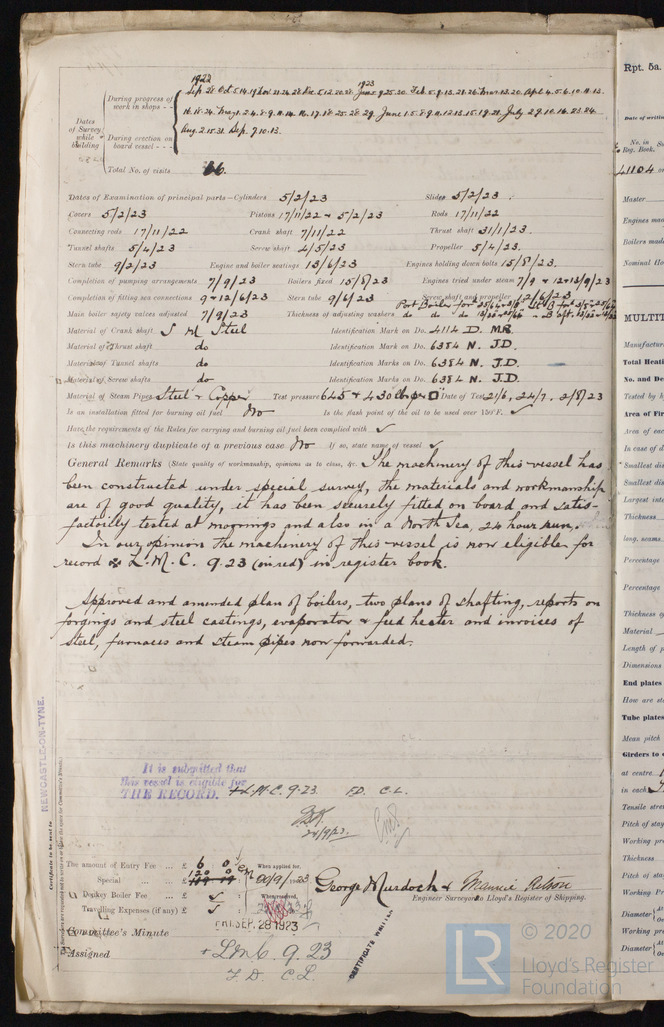 1922
1923
During progress of work in shops - -
Dates of Survey while building
During erection on board vessel - - -
Aug. 2.15.31. Sep. 7.10.13.
Total No. of visits 66.
Dates of Examination of principal parts—Cylinders 5/2/23 Slides 5/2/23
Covers 5/2/23 Pistons 17/11/22 + 5/2/23 Rods 17/11/22
Connecting rods 17/11/22 Crank shaft 7/11/22 Thrust shaft 31/1/23.
Tunnel shafts 5/4/23 Screw shaft 4/5/23 Propeller 5/4/23.
Stern tube 9/2/23 Engine and boiler seatings 13/6/23 Engines holding down bolts 15/8/23.
Completion of pumping arrangements 7/9/23 Boilers fixed 15/8/23 Engines tried under steam 7/9 + 12+13/9/23
Completion of fitting sea connections 9+12/6/23 Stern tube 9/6/23 Screw shaft and propeller 12/6/23
Main boiler safety valves adjusted 7/9/23 Thickness of adjusting washers
Material of Crank shaft S M Steel Identification Mark on Do. 4114 D. M.R.
Material of Thrust shaft do Identification Mark on Do. 6384 N. J.D.
Material of Tunnel shafts do Identification Marks on Do. 6384 N. J.D.
Material of Screw shafts do Identification Marks on Do. 6384 N. J.D.
Material of Steam Pipes Steel + Copper Test pressure 645 + 430 lbs per □ Date of Test 21/6, 24/7, 2/8/23
Is an installation fitted for burning oil fuel No Is the flash point of the oil to be used over 150°F. ✓
Have the requirements of the Rules for carrying and burning oil fuel been complied with ✓
Is this machinery duplicate of a previous case No If so, state name of vessel ✓
General Remarks (State quality of workmanship, opinions as to class, &c. The machinery of this vessel has
been constructed under special survey, the materials and workmanship
are of good quality, it has been securely fitted on board and satis-
factorily tested at moorings and also in a North Sea, 24 hour run.
In our opinion the machinery of this vessel is now eligible for
record L.M.C. 9.23 (in red) in register book.
Approved and amended plan of boilers, two plans of shafting, reports on
forgings and steel castings, evaporator + feed heater and invoices of
steel, furnaces and steam pipes now forwarded.
NEWCASTLE-ON-TYNE.
Certificate to be sent to
It is submitted that
this vessel is eligible for
THE RECORD. + L.M.C. 9.23. F.D. C.L.
24/9/23.
The amount of Entry Fee ... £ 6 0 When applied for,
Special ... £ 120 0
Donkey Boiler Fee ... £ ✓ When received,
Travelling Expenses (if any) £ ✓
George Murdoch +
Engineer Surveyor to Lloyd's Register of Shipping.
Committee's Minute FRI. SEP. 28 1923
Assigned + LMC 9.23
F.D. C.L.
CERTIFICATE WRITTEN
Rpt. 5a.
No. in Reg. Book.
41104
Master
Engines
Boilers
Nominal
MULTIT
Total Heati
No. and De
Tested by h
Area of Fir
Area of eac
In case of d
Smallest dis
Smallest dis
Largest inte
Thickness
long. seams.
Percentage
Percentage
Thickness o
Material
Length of p
Dimensions
End plates
How are st
Tube plates
Mean pitch
Girders to c
at centre
in each
Tensile stre
Pitch of stay
Working pre
Thickness
Pitch of sta
Working Pr
Diameter
Working pre
Diameter
LR
© 2020
Lloyd's Register
Foundation